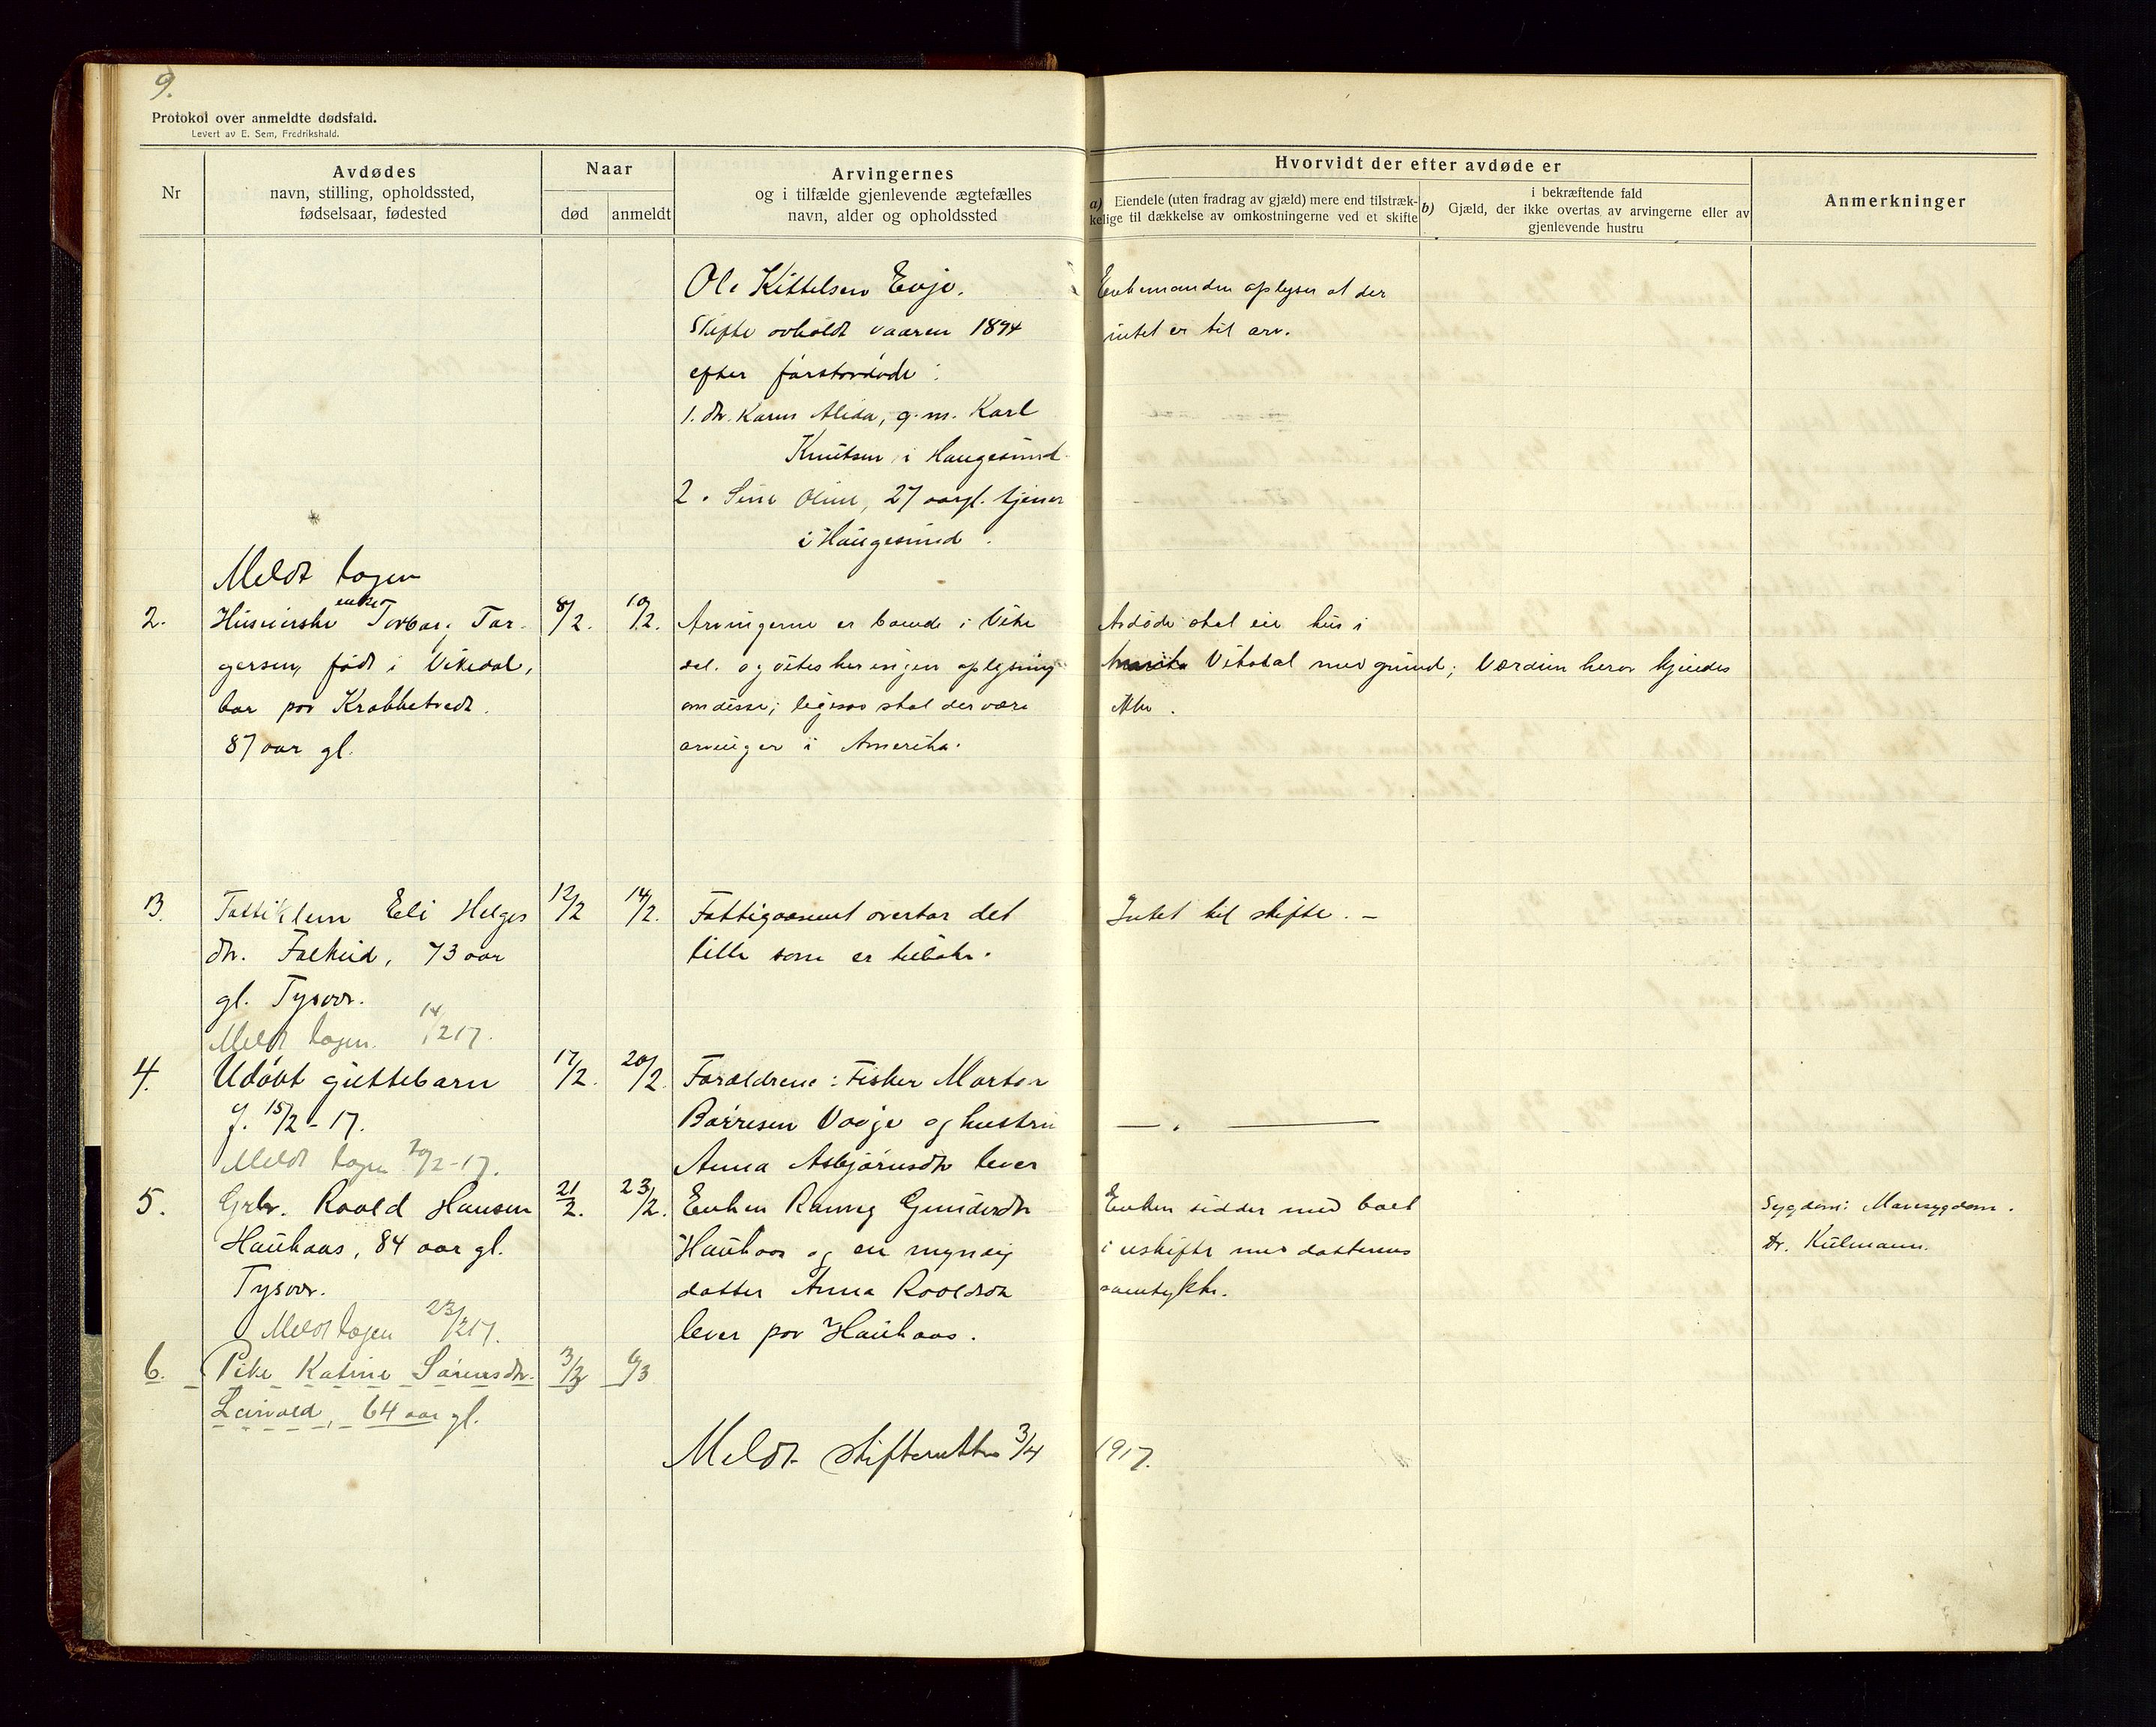 9.
Protokol over anmeldte dødsfald.
Levert av E. Sem, Fredrikshald.
Nr
Avdødes
navn, stilling, opholdssted,
fødselsaar, fødested
Naar
død
anmeldt
Arvingernes
og i tilfælde gjenlevende ægtefælles
navn, alder og opholdssted
Hvorvidt der efter avdøde er
a) Eiendele (uten fradrag av gjæld) mere end tilstræk-
kelige til dækkelse av omkostningerne ved et skifte
i bekræftende fald
b) Gjæld, der ikke overtas av arvingerne eller av
gjenlevende hustru
Anmerkninger
Ole Kittelsen Evje.
Skifte avholdt vaaren 1894
efter førstavdøde:
1. dtr. Karen Alida, g.m. Karl
Knutsen i Haugesund
2. Sine Oline, 27 aar gl. tjener
i Haugesund.
Enkemanden oplyser at der
intet er til arv.
Meldt lagen
2.
Huseierske enke Torbor Tor-
gersen, født i Vikedal,
bor paa Krabbetvedt.
87 aar gl.
8/2.
10/2.
Arvingerne er boende i Vike
dal. og vites her ingen oplysning
om disse; ligesaa skal der være
arvinger i Amerika.
Avdøde skal eie hus i
Vikedal med grund; Værdien herav kjendes
ikke.
3.
Fattiklem Eli Helges
dtr. Falkeid, 73 aar
gl. Tysvær.
Meldt lagen 14/2 17.
12/2
14/2.
Fattigvæsenet overtar det
lille som er tilbake.
Intet til skifte. —
4.
Udøbt guttebarn
f. 15/2 - 17.
Meldt lagen 20/2-17.
17/2.
20/2.
Forældrene: Fisker Morten
Børresen Vaage og hustru
Anna Asbjørnsdtr lever
— . —
5.
Grbr. Roald Hansen
Haukaas, 84 aar gl.
Tysvær.
Meldt lagen 23/2 17.
21/2.
23/2.
Enken Ranng Gundersdtr
Haukaas og en myndig
datter Anna Roaldsdtr
lever paa Haukaas.
Enken sidder med boet
i uskifte med datterens
samtykke.
Sygdom: Mavesygdom.
Dr. Kulmann.
6.
Pike Katrine Sørensdtr.
Leirvold, 64 aar gl.
3/3
6/3
Meldt skifteretten 3/4 1917.